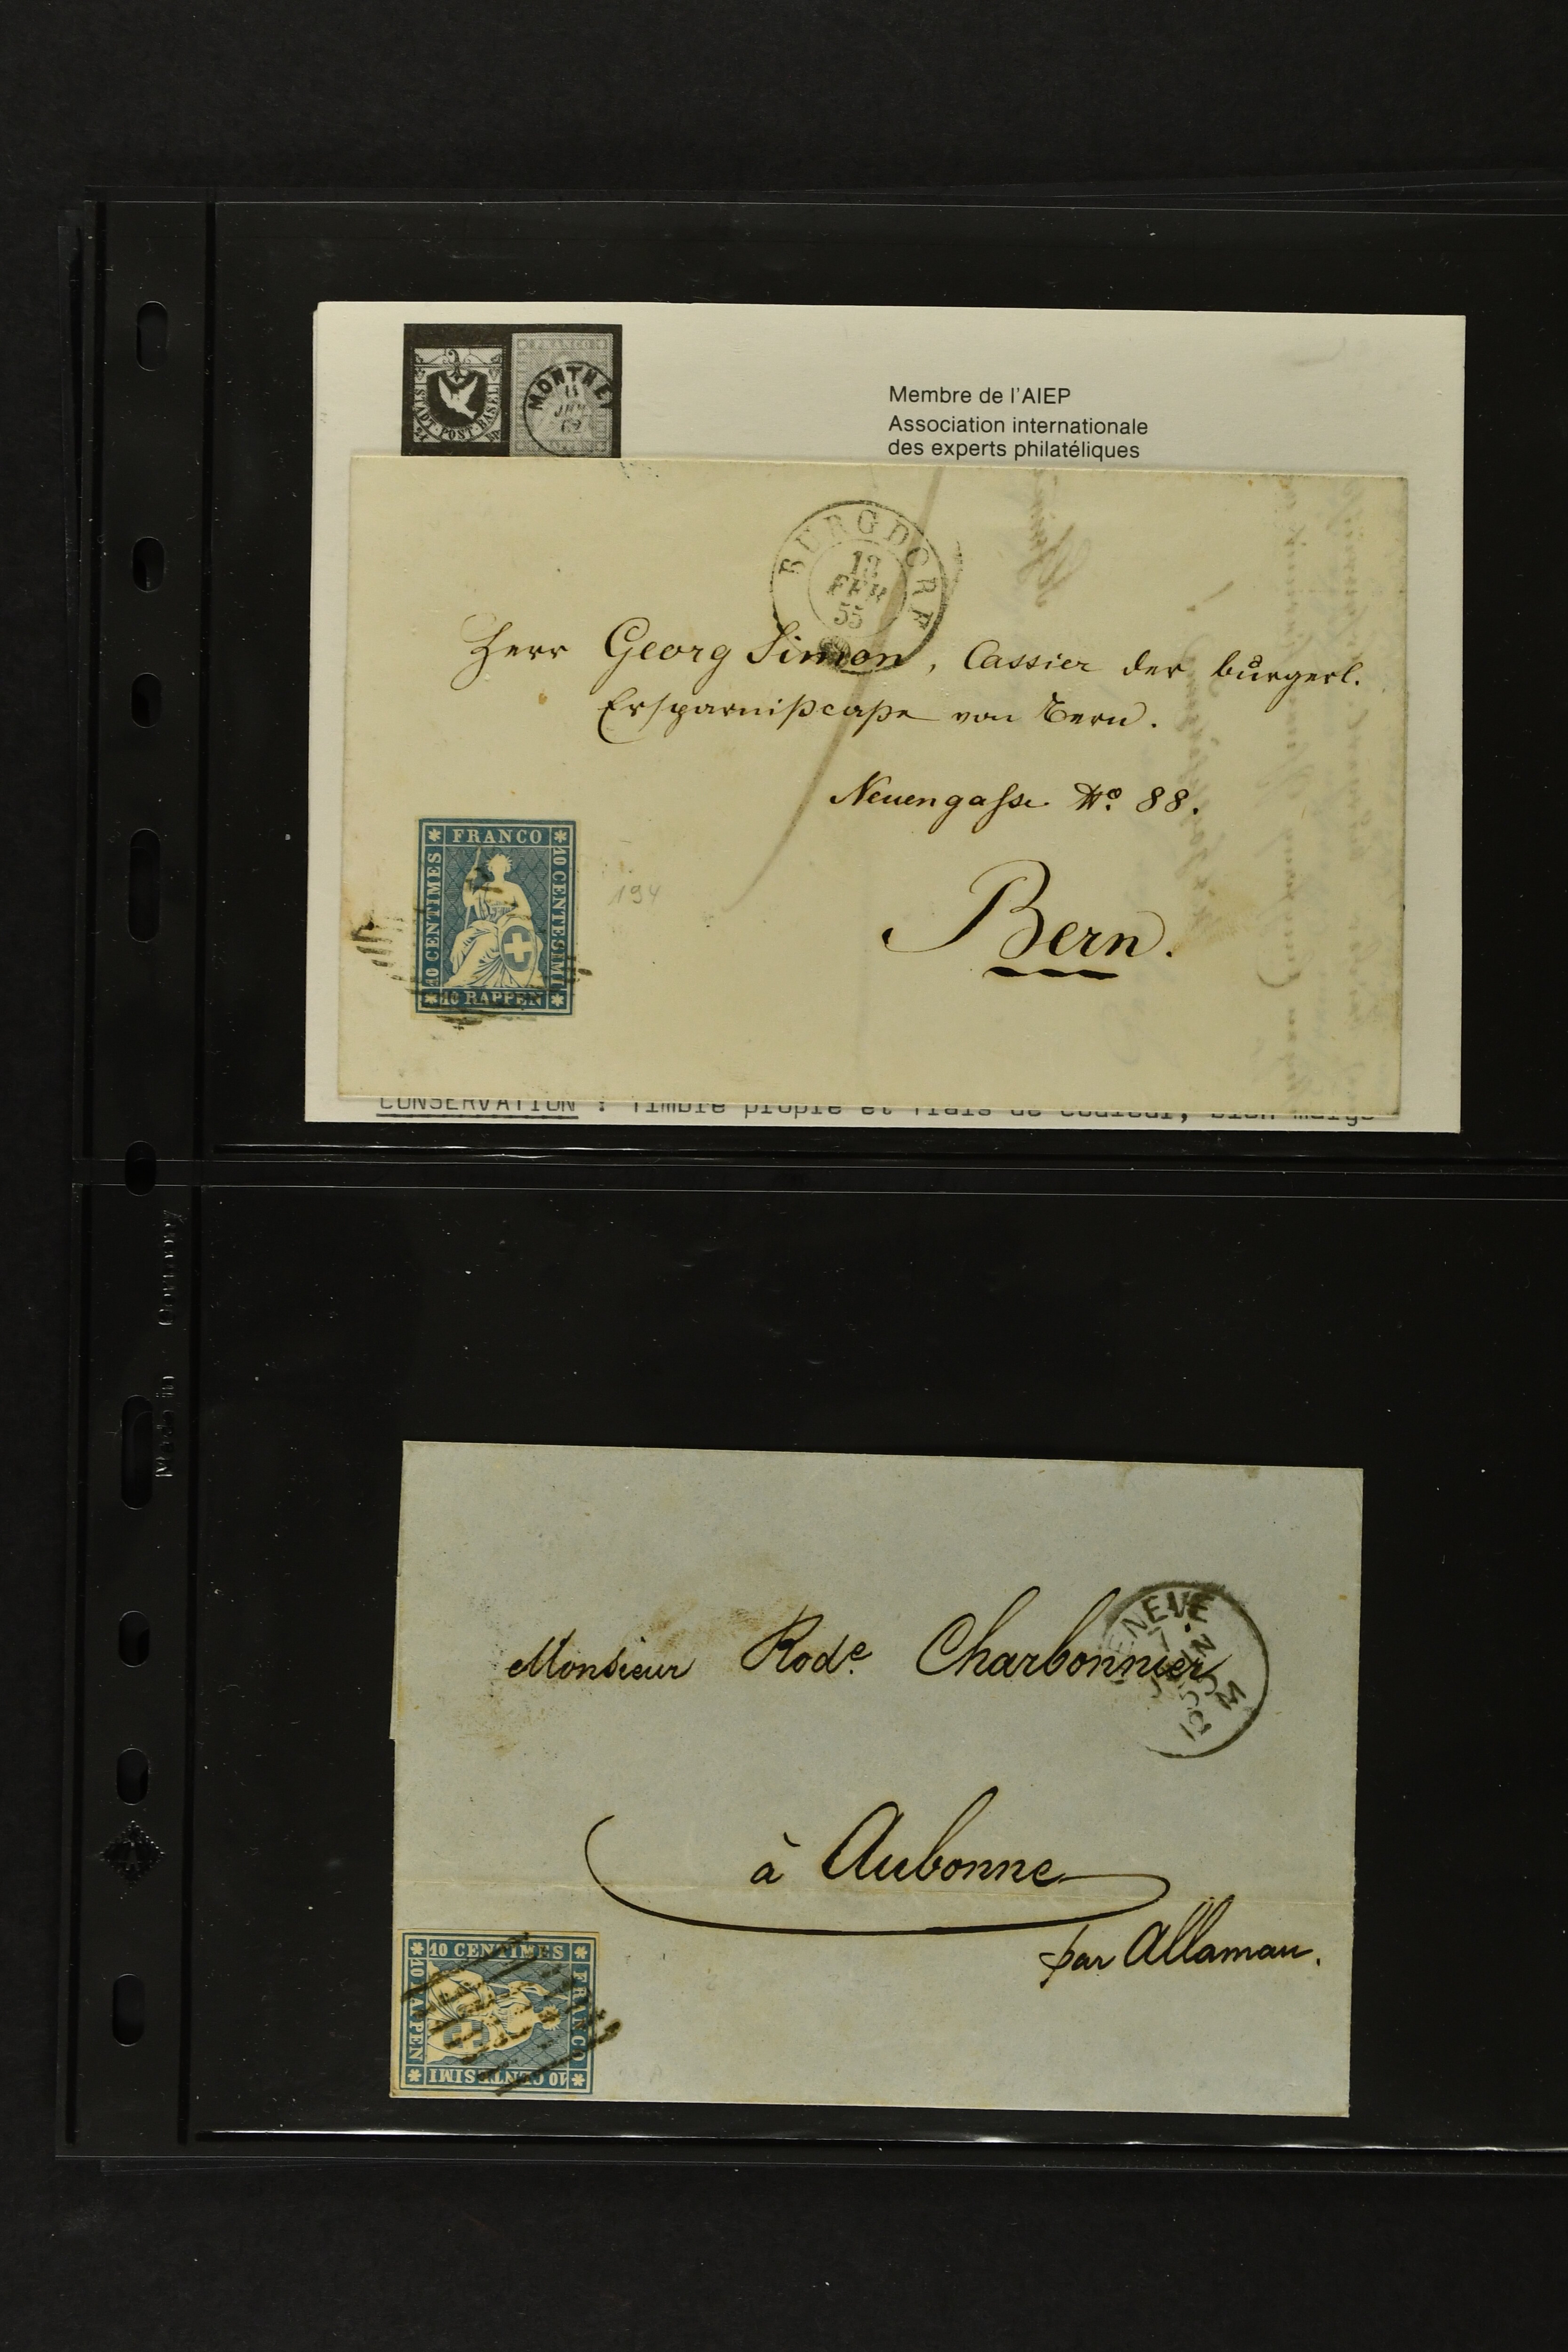 STADT·POST·BASEL
FRANCO
MONTHEY
Membre de l'AIEP
Association internationale
des experts philatéliques
BURGDORF
13
FEB
55
Herr Georg Simon, Cassier der burgerl.
Ersparnißcaße von Bern.
Neuengasse No. 88.
Bern.
194
FRANCO
10 CENTIMES
10 CENTESIMI
10 RAPPEN
CONSERVATION : Timbre propre et frais de couleur, bien margé
Made in Germany
GENEVE
7
JUIN
55
M
Monsieur Rode. Charbonnier
à Aubonne
par Allaman.
10 CENTIMES
FRANCO
10 RAPPEN
10 CENTESIMI